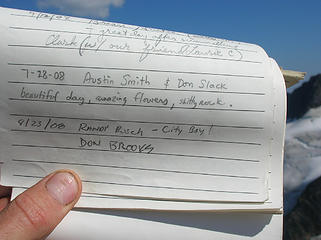 Clark (w/ our friend
7-28-08 Austin Smith & Don Slack
beautiful day, amazing flowers, shitty rock.
8/23/08 RANDY BUSCH - City Boy!
DON BROOKS